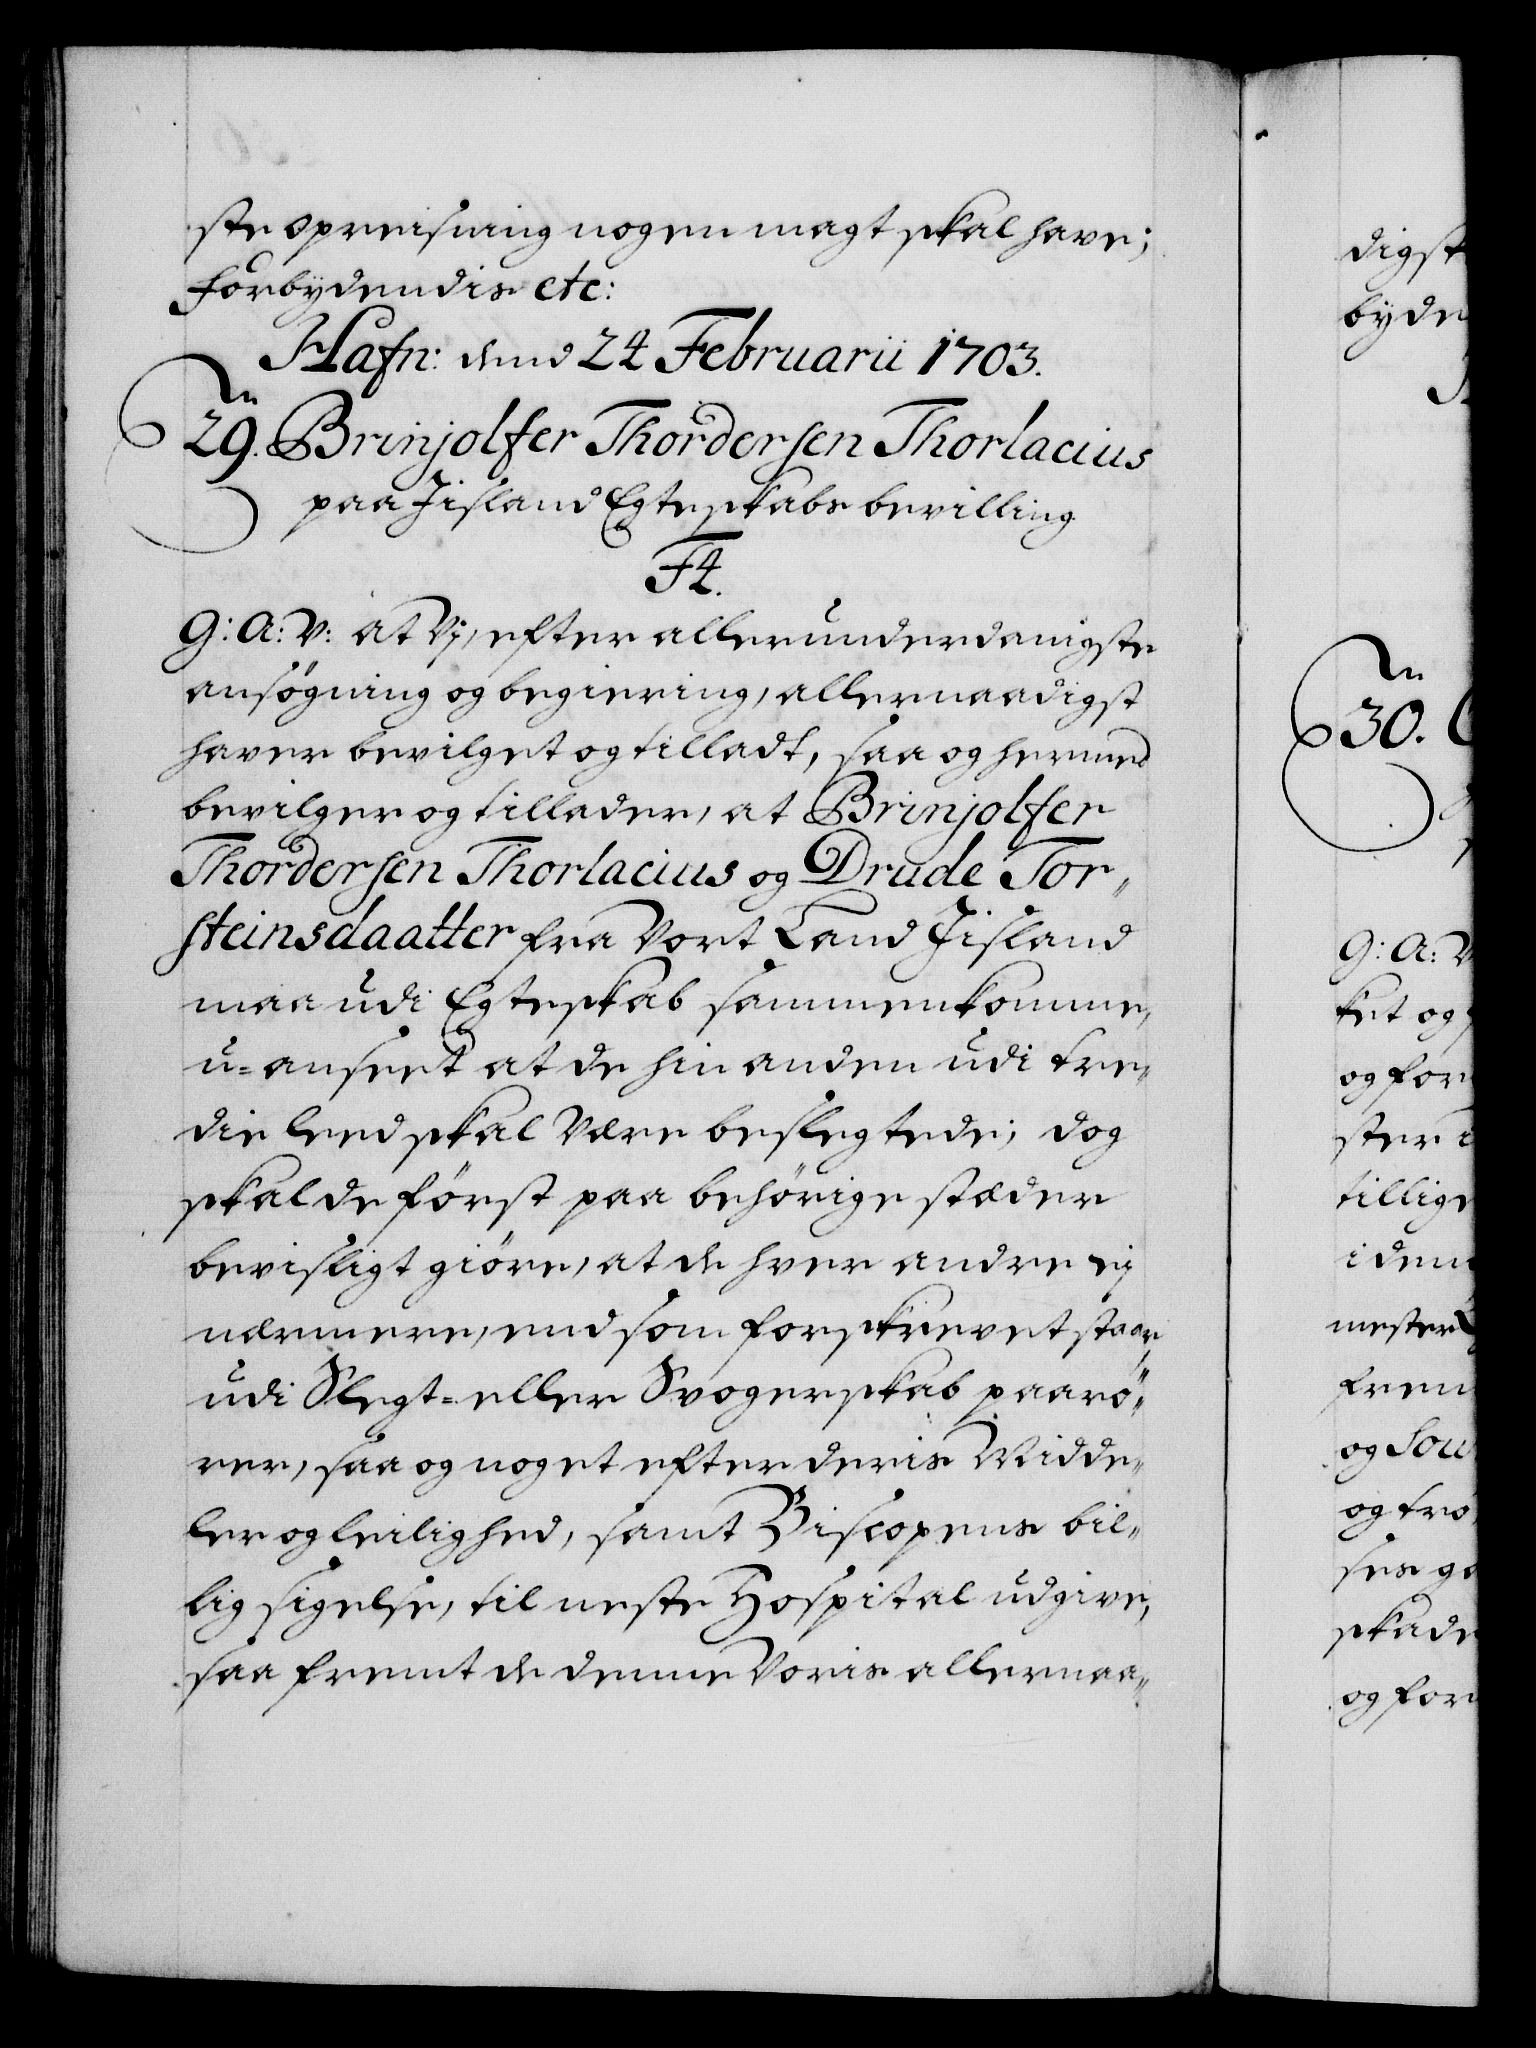 ste opreisning nogen magt skal have;
forbydendis etc:
Hafn: dend 24 Februarii 1703.
29. Brinjolfer Thordersen Thorlacius
paa Jisland Egteskabs bevilling
F4.
G: A: V: at Vj, efter allerunderdanigste
ansøgning og begiering, allernaadigst
haver bevilget og tilladt, saa og hermed
bevilger og tillader, at Brinjolfer
Thordersen Thorlacius og Drude Tor„
steinsdaatter fra Vort Land Jisland
maa udi Egteskab sammenkomme,
u=anseet at de hin anden udi tre„
die leed skal være beslegtede; dog
skal de först paa behörige stæder
bevisligt giöre, at de hver andre ej
nærmere, end som forskrevet staar,
udi Slegt= eller Svogerskab paarö„
rer, saa og noget efter deris Midde„
ler og leilighed, samt Biscopens bil„
lig sigelse, til neste Hospital udgive,
saa fremt de denne Voris allernaa„
digst
byde
30.
G: A: V
ket og
og for
ster
tillige
i den
mester
frem
og Sou
og tro
ses
skade
og for